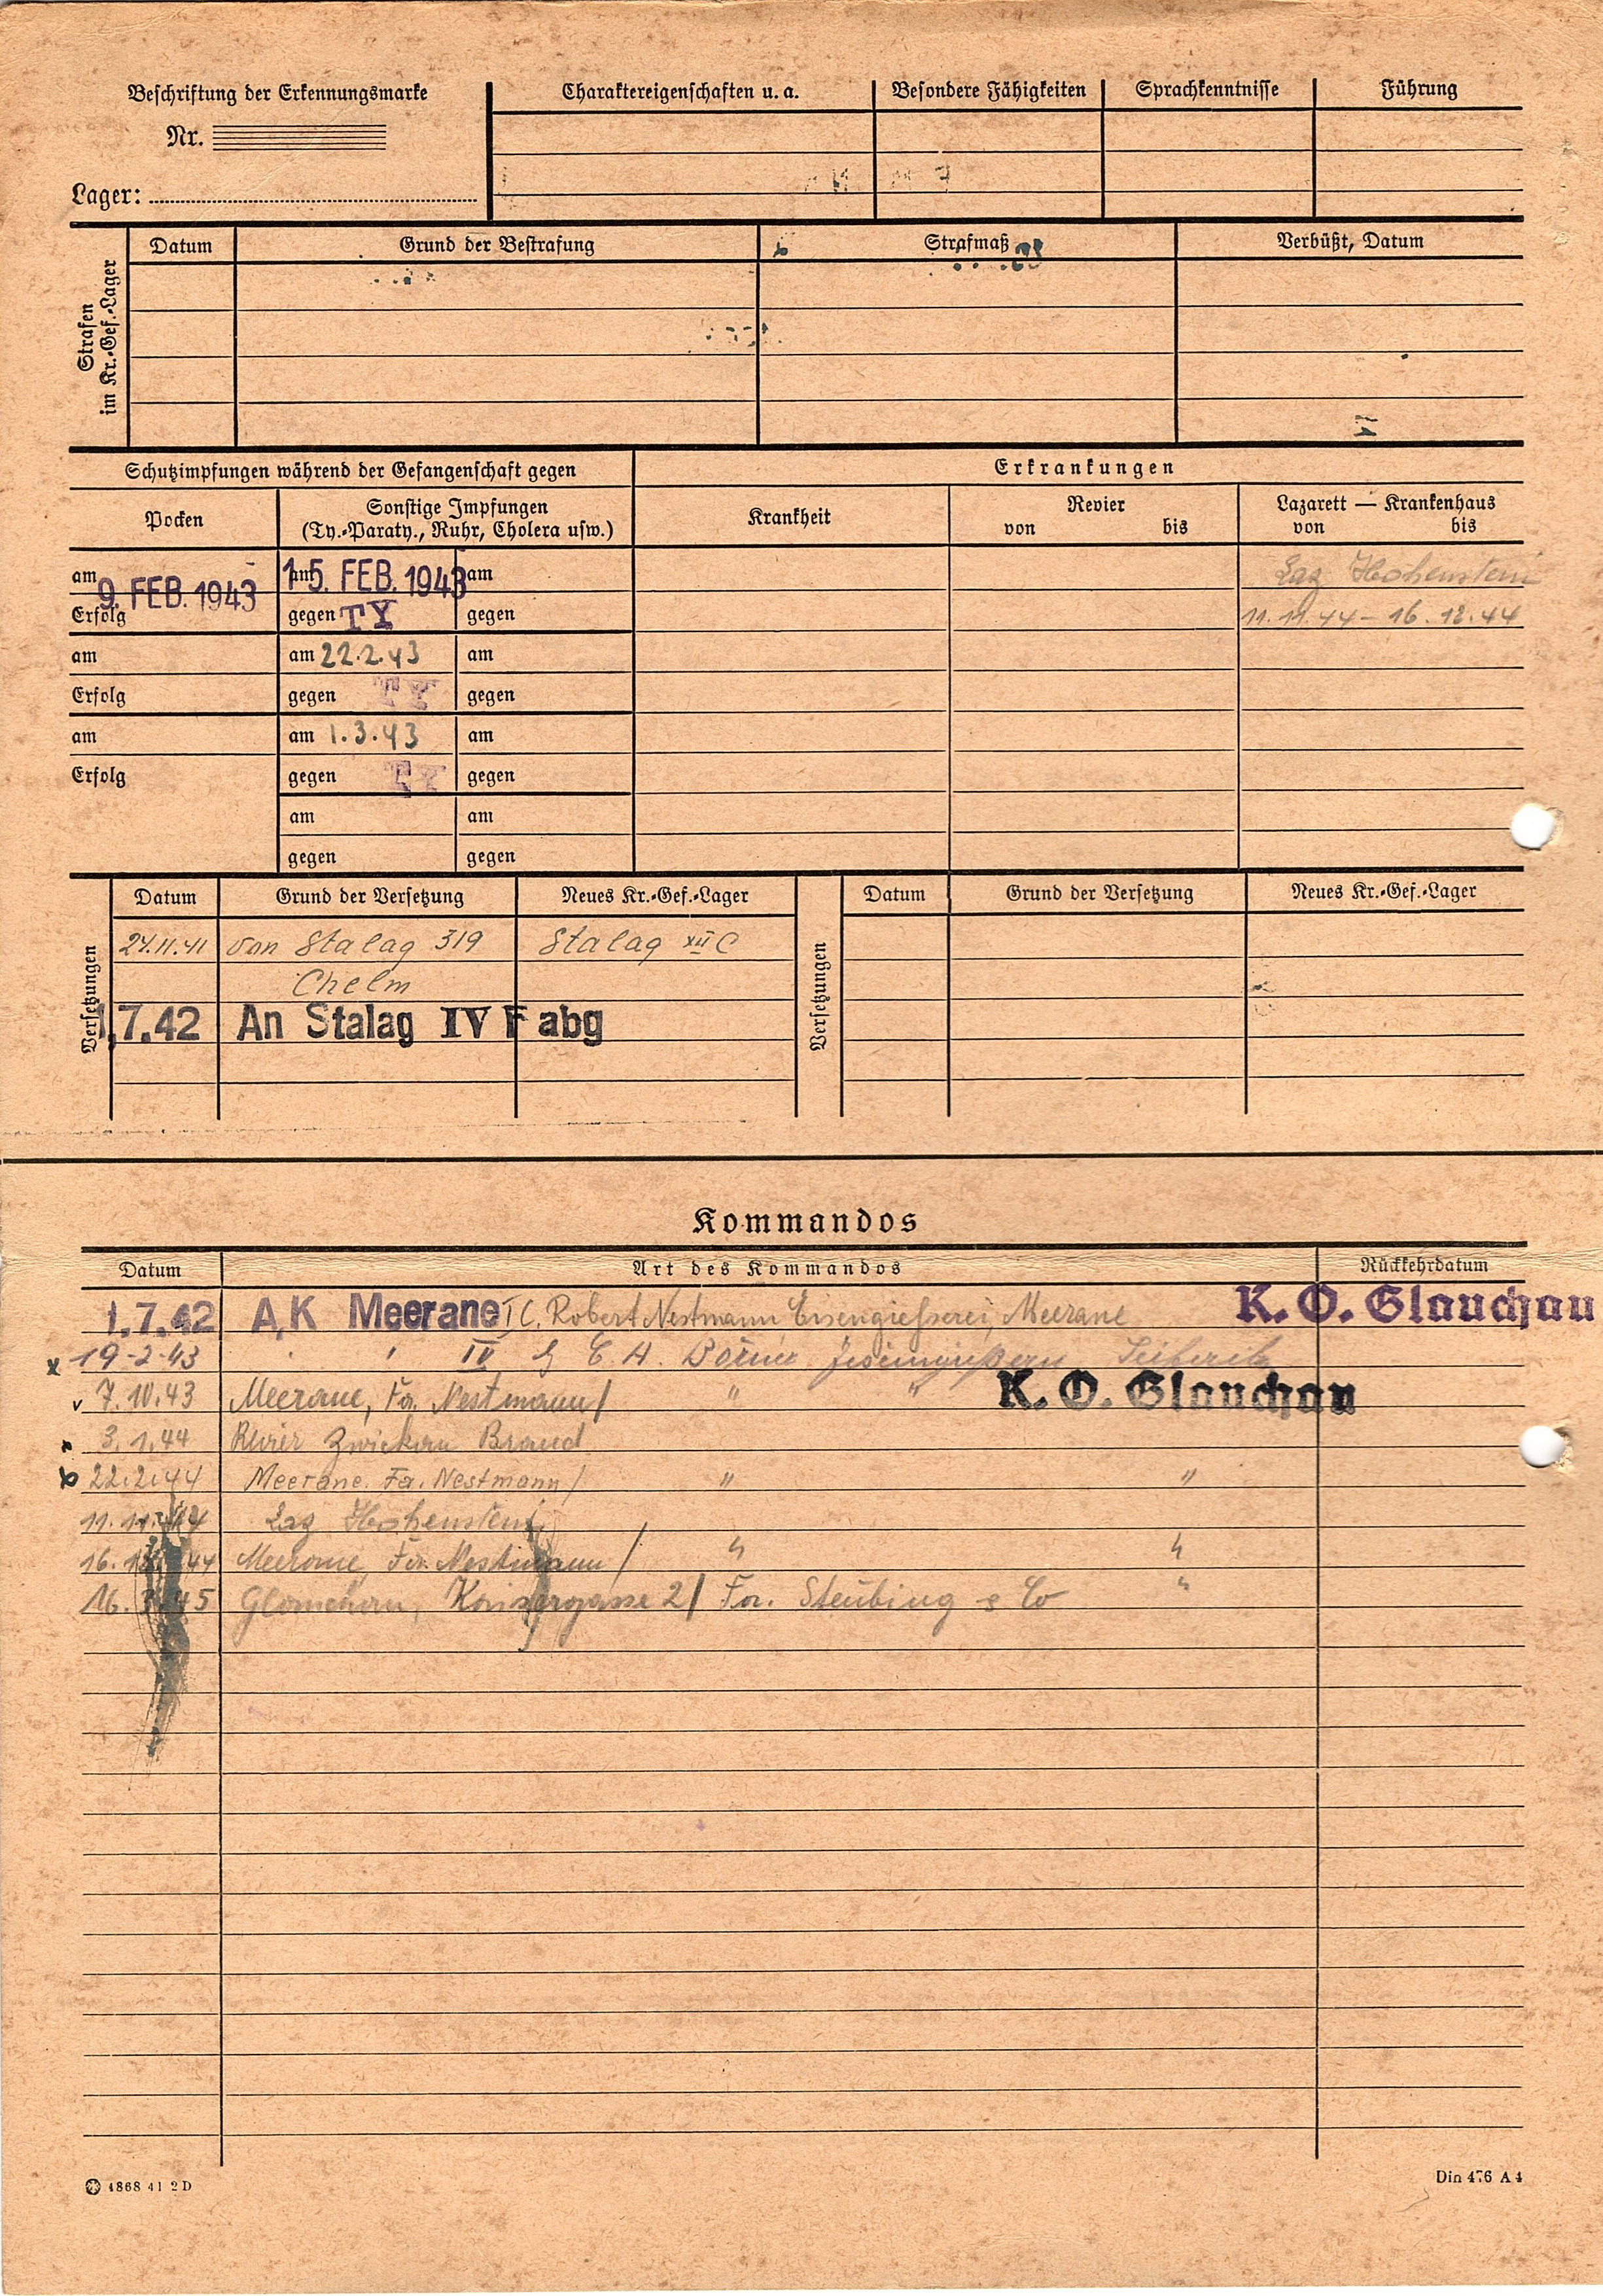 Beschriftung der Erkennungsmarke
Nr.
Lager:
Charaktereigenschaften u. a.
Besondere Fähigkeiten
Sprachkenntnisse
Führung
Strafen
im Kr.-Gef.-Lager
Datum
Grund der Bestrafung
Strafmaß
Verbüßt, Datum
Schutzimpfungen während der Gefangenschaft gegen
Erkrankungen
Pocken
Sonstige Impfungen
(Ty.-Paraty., Ruhr, Cholera usw.)
Krankheit
Revier
von bis
Lazarett — Krankenhaus
von bis
am 9. FEB. 1943
Erfolg
am 15. FEB. 1943
gegen TY
am
gegen
Laz Hohenstein
11.11.44 - 16.12.44
am
Erfolg
am 22.2.43
gegen TY
am
gegen
am
Erfolg
am 1.3.43
gegen TY
am
gegen
am
gegen
am
gegen
Versetzungen
Datum
Grund der Versetzung
Neues Kr.-Gef.-Lager
24.11.41 von Stalag 319 Stalag XII C
Chelm
1.7.42 An Stalag IV F abg
Versetzungen
Datum
Grund der Versetzung
Neues Kr.-Gef.-Lager
Kommandos
Datum
Art des Kommandos
Rückkehrdatum
1.7.42 A,K Meerane IC. Robert Nestmann Eisengiesserei, Meerane K. O. Glauchau
19-2-43 " " IV G E. H. Börner Seiferitz
7.10.43 Meerane, Fa. Nestmann/ " " K. O. Glauchau
3.1.44 Revier Zwickau Brand
22.2.44 Meerane. Fa. Nestmann/ " "
11.11.44 Laz Hohenstein
16.12.44 Meerane, Fa. Nestmann/ " "
16.3.45 Glauchau, 2/ Fa. Steubing & Co "
4868 41 2 D
Din 476 A 4